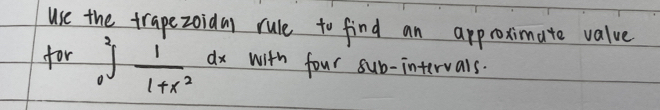 Use the trapezoidal rule to find an approximate value
for ∫₀² 1/(1+x²) dx with four sub-intervals.